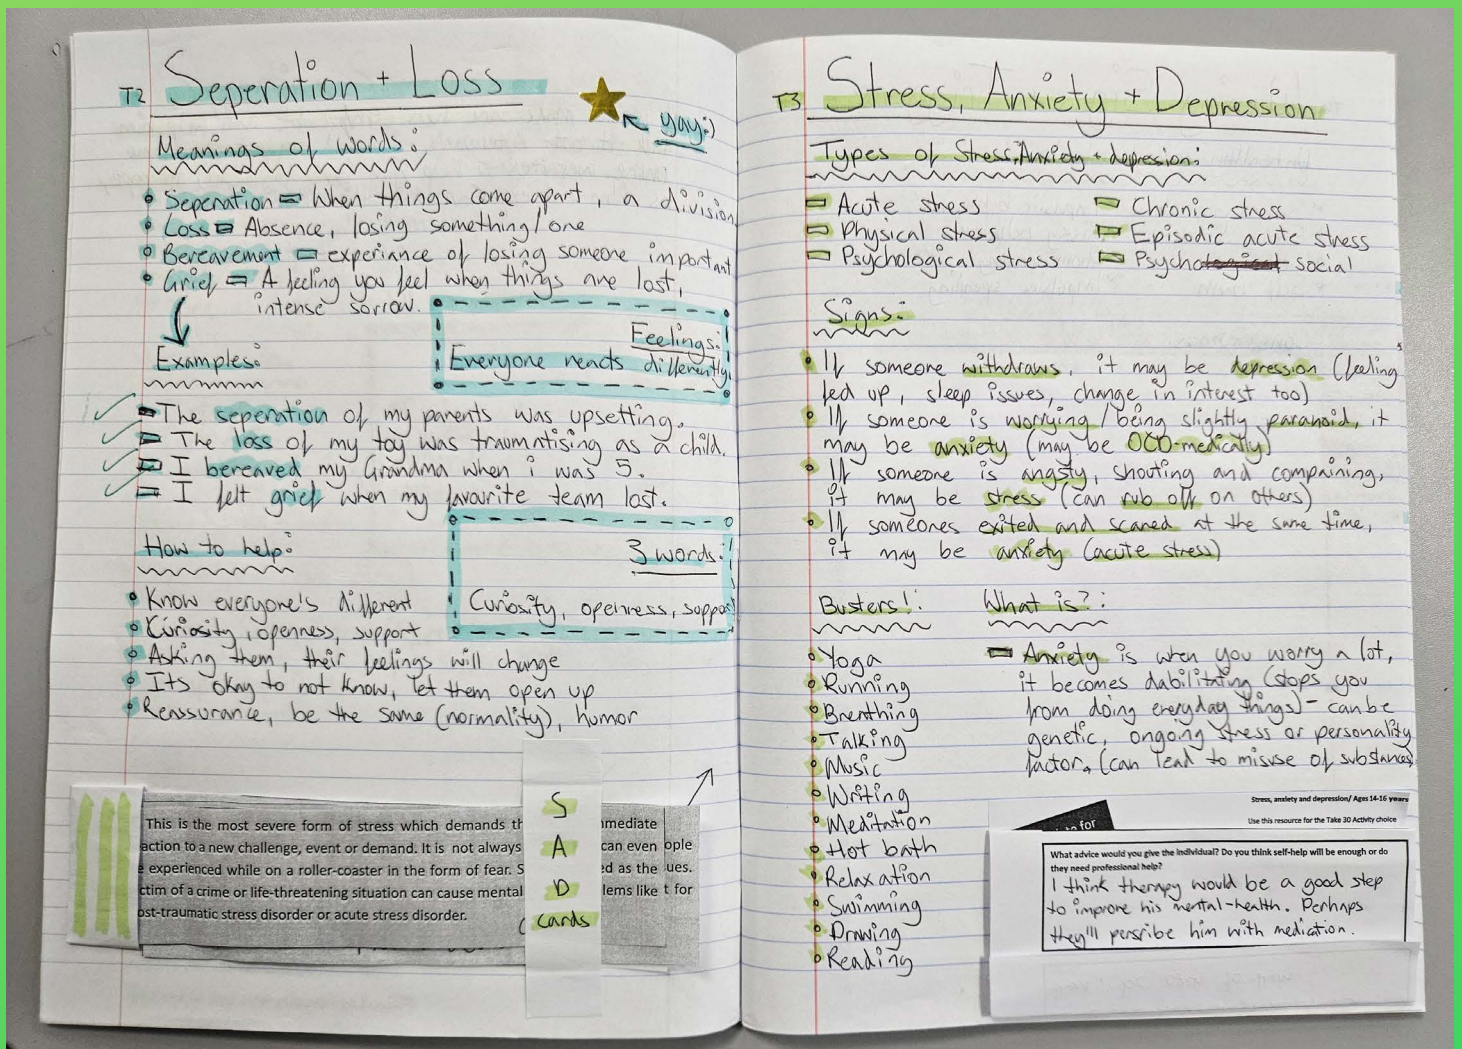 T2 Seperation + Loss
yay:)
Meanings of words:
Seperation = When things come apart, a division
Loss = Absence, losing something/one
Bereavement = experiance of losing someone important
Grief = A feeling you feel when things are lost,
intense sorrow.
Feelings:
Everyone reacts differently
Examples:
The seperation of my parents was upsetting.
The loss of my toy was traumatising as a child.
I bereaved my Grandma when i was 5.
I felt grief when my favourite team lost.
How to help:
3 words:
Curiosity, openness, support
Know everyone's different
Curiosity, openness, support
Asking them, their feelings will change
Its okay to not know, let them open up
Reassurance, be the same (normality), humor
This is the most severe form of stress which demands
mmediate
action to a new challenge, event or demand. It is not always
can even
ople
experienced while on a roller-coaster in the form of fear. S
ed as the
ues.
ctim of a crime or life-threatening situation can cause mental
lems like
t for
ost-traumatic stress disorder or acute stress disorder.
S
A
D
cards
T3 Stress, Anxiety + Depression
Types of Stress, Anxiety + depression:
Acute stress
Chronic stress
Physical stress
Episodic acute stress
Psychological stress
Psycho social
Signs:
If someone withdraws, it may be depression (feeling
fed up, sleep issues, change in interest too)
If someone is worrying / being slightly paranoid, it
may be anxiety (may be OCD-medically)
If someone is angsty, shouting and compaining,
it may be stress (can rub off on others)
If someones exited and scared at the same time,
it may be anxiety (acute stress)
Busters!:
Yoga
Running
Breathing
Talking
Music
Writing
Meditation
Hot bath
Relaxation
Swimming
Drawing
Reading
What is?:
Anxiety is when you worry a lot,
it becomes dabilitating (stops you
from doing everyday things) - can be
genetic, ongoing stress or personality
factor. (can lead to misuse of substances)
Stress, anxiety and depression/ Ages 14-16 years
Use this resource for the Take 30 Activity choice
for
What advice would you give the individual? Do you think self-help will be enough or do
they need professional help?
I think therapy would be a good step
to improve his mental-health. Perhaps
they'll perscribe him with mediation.